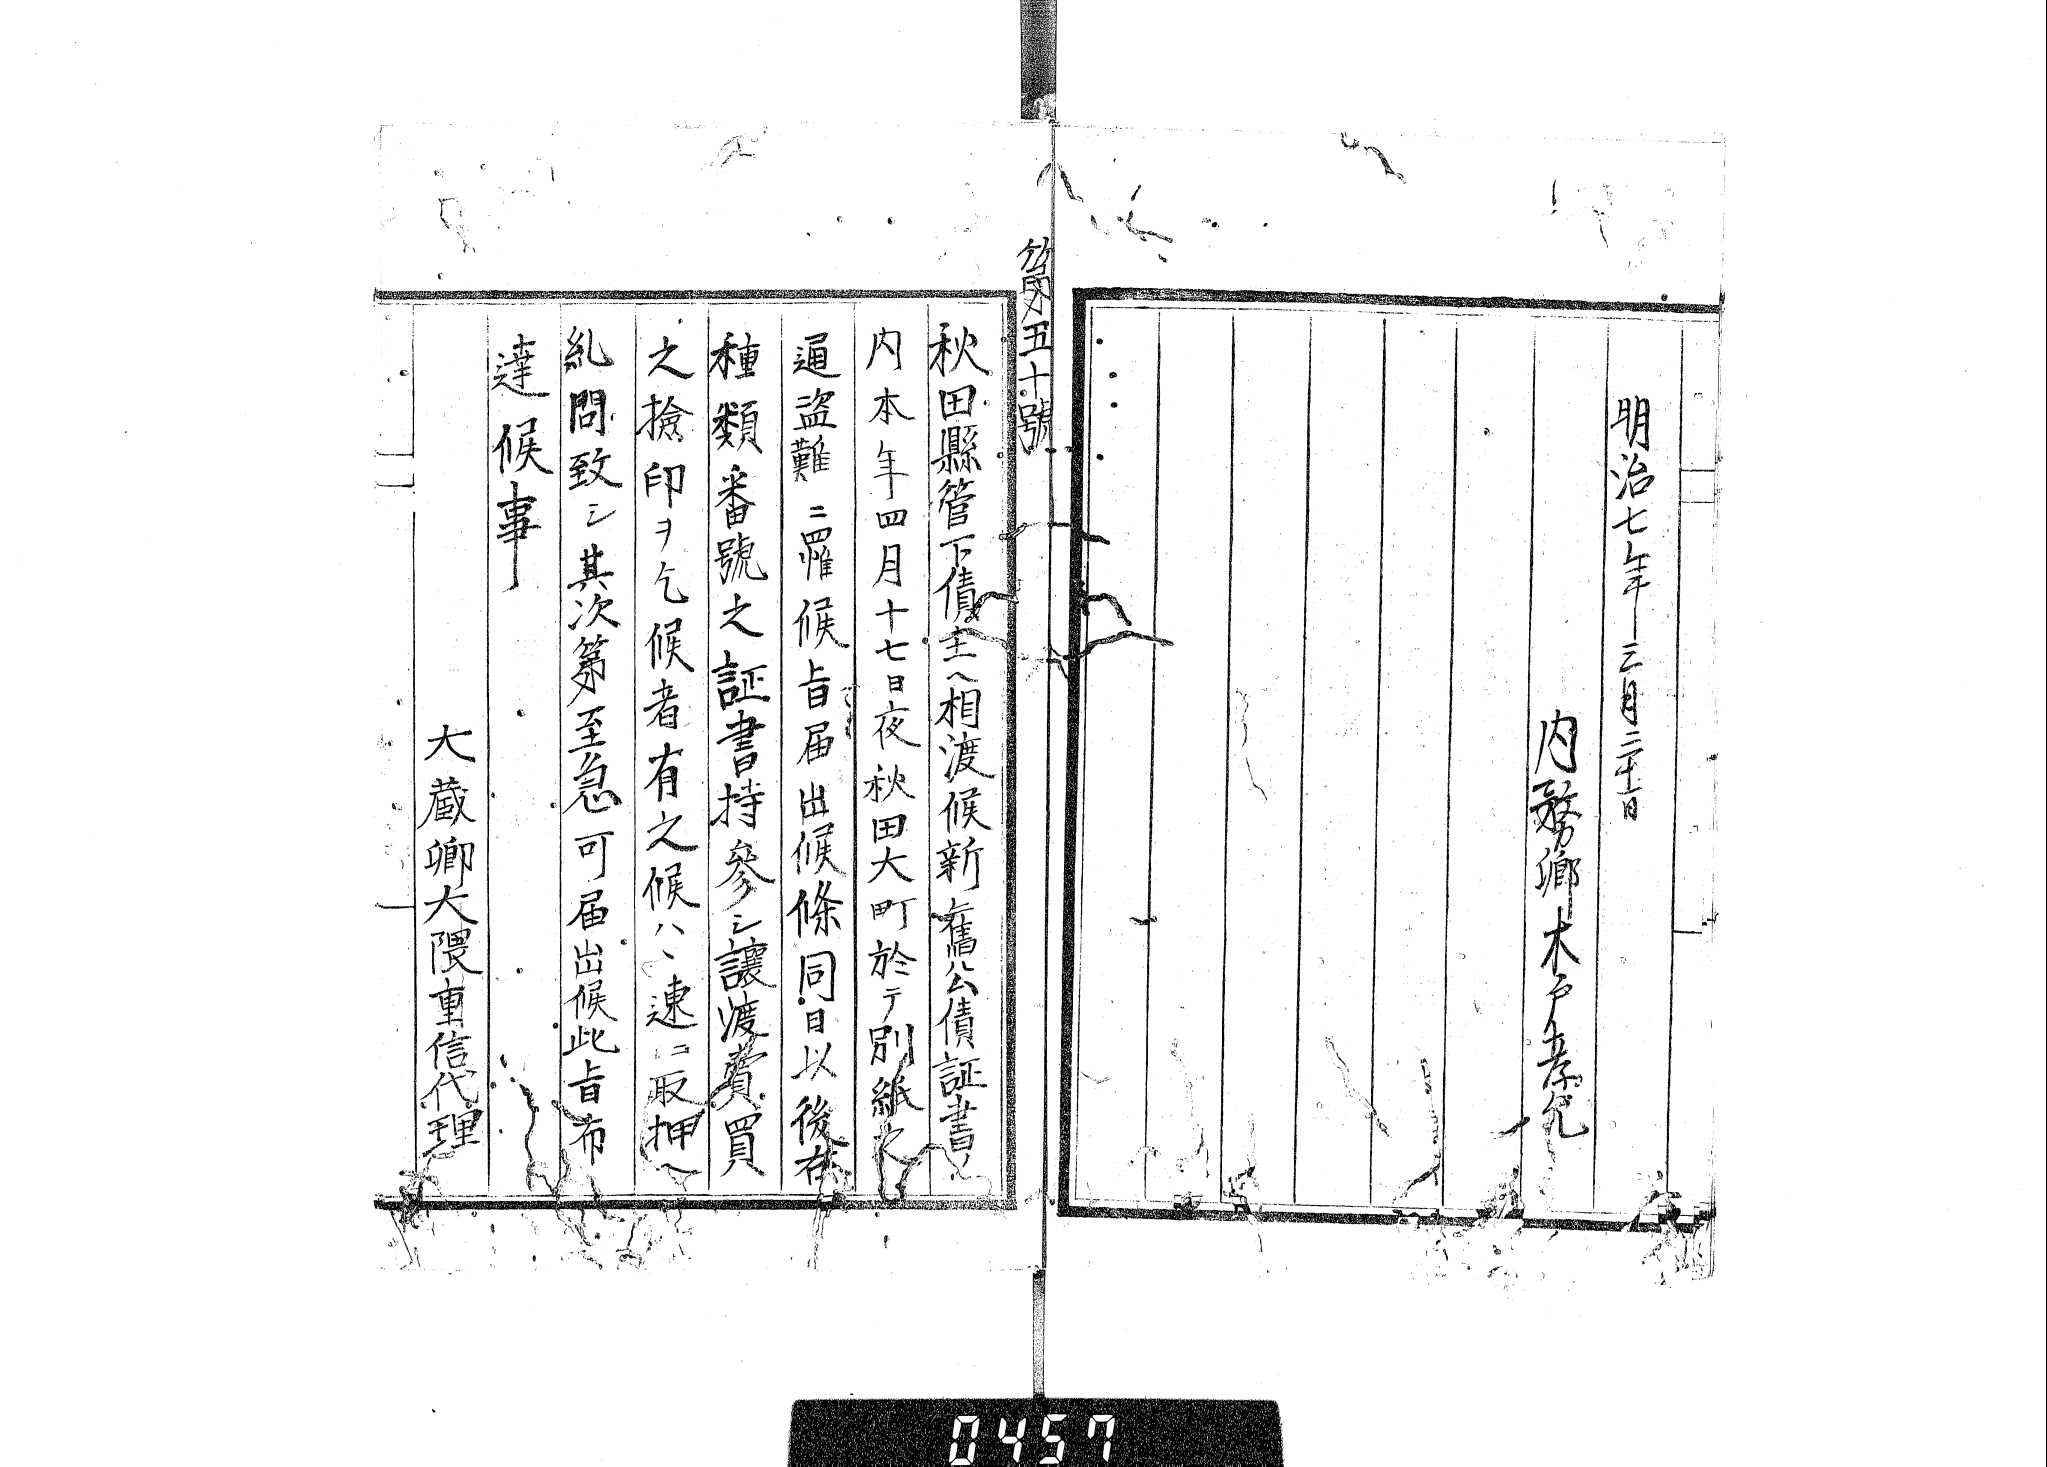 明治七年三月二十二日
内務卿木戸孝允
第五十號
秋田縣管下債主ヘ相渡候新舊公債証書ノ
内本年四月十七日夜秋田大町於テ別紙之
通盗難ニ罹候旨届出候條同日以後右
種類番號之証書持參シ讓渡賣買
之撿印ヲ乞候者有之候ハヽ速ニ取押ヘ
糺問致シ其次第至急可届出候此旨布
達候事
大蔵卿大隈重信代理
0457